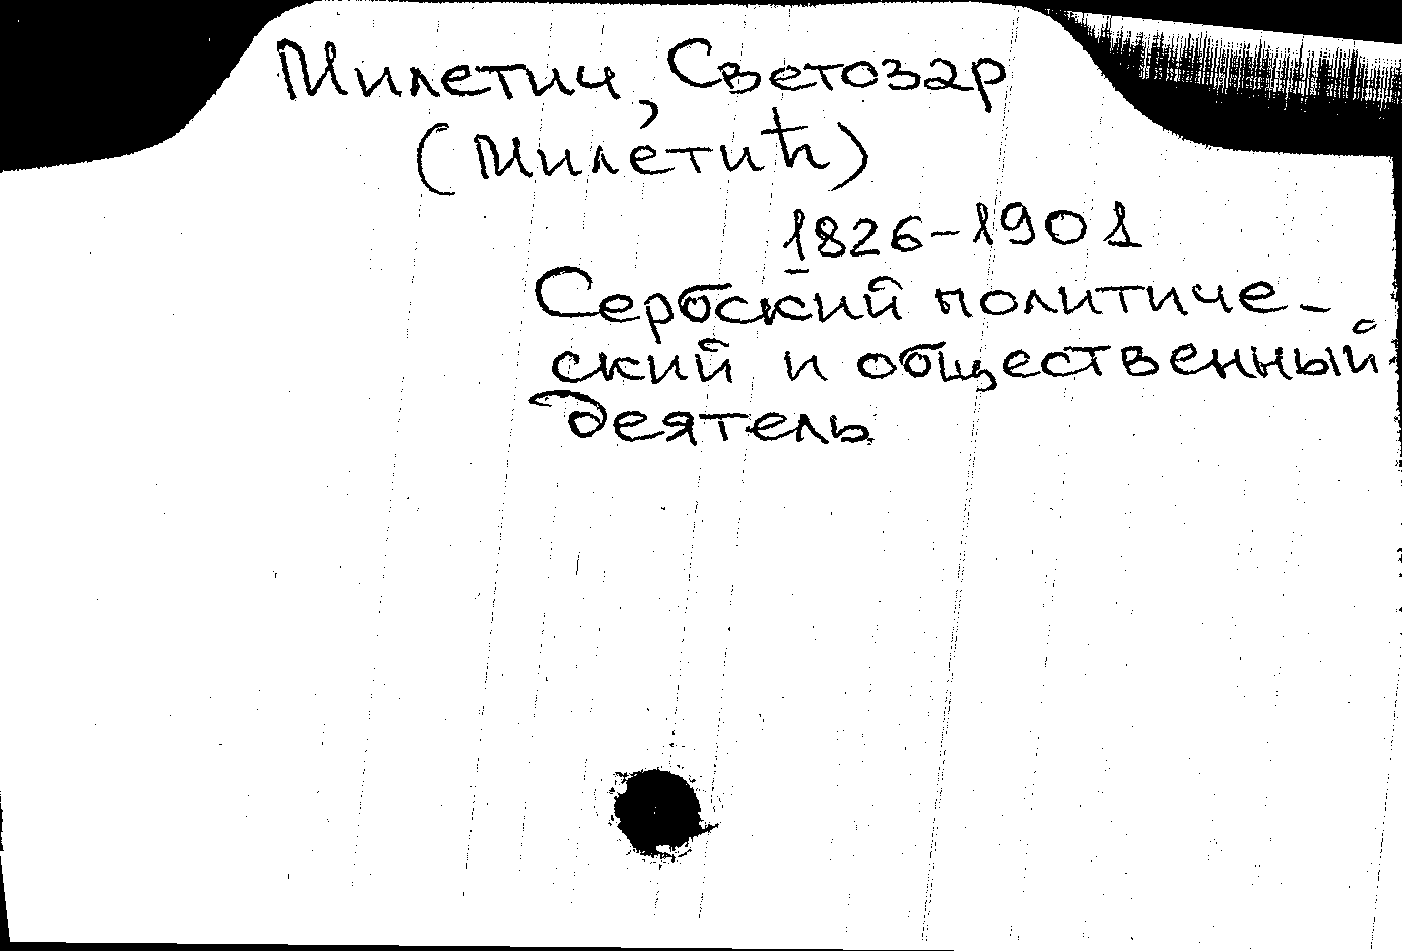 Милетич, Светозар
(Милетић)
1826-1901
Сербский политиче-
ский и общественный
деятель